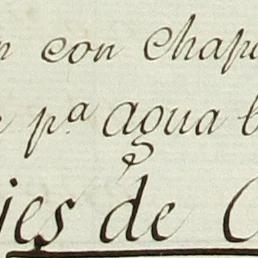 con chap
pª agua
jes de